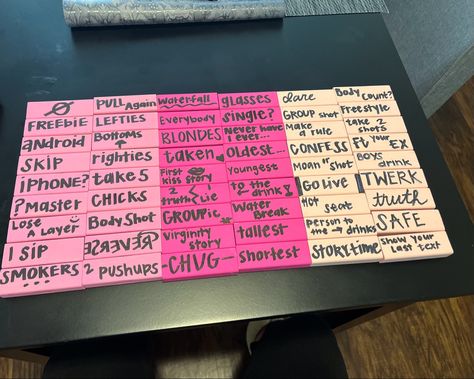 Ø
FREEBIE
android
SKIP
iPHONE?
?Master
Lose
A Layer
1 SIP
SMOKERS...
PULL Again
LEFTIES
Bottoms
righties
take 5
CHICKS
Body Shot
REVERSE
2 PUSHUPS
Waterfall
Everybody
BLONDES
taken
First
kiss story
2 truths 1 lie
GROUPie
virginity
story
-CHUG-
glasses
single?
Never have
I ever...
Oldest...
youngest
to the
→ drink
Water
Break
tallest
shortest
dare
GROUP shot
Make
a rule
CONFESS
Moan or shot
Go live
HOT
seat
person to
the → drinks
STORYtime
Body
Count?
Freestyle
take 2
shots
FT your
EX
BOYS
drink
TWERK
truth
SAFE
Show your
last text